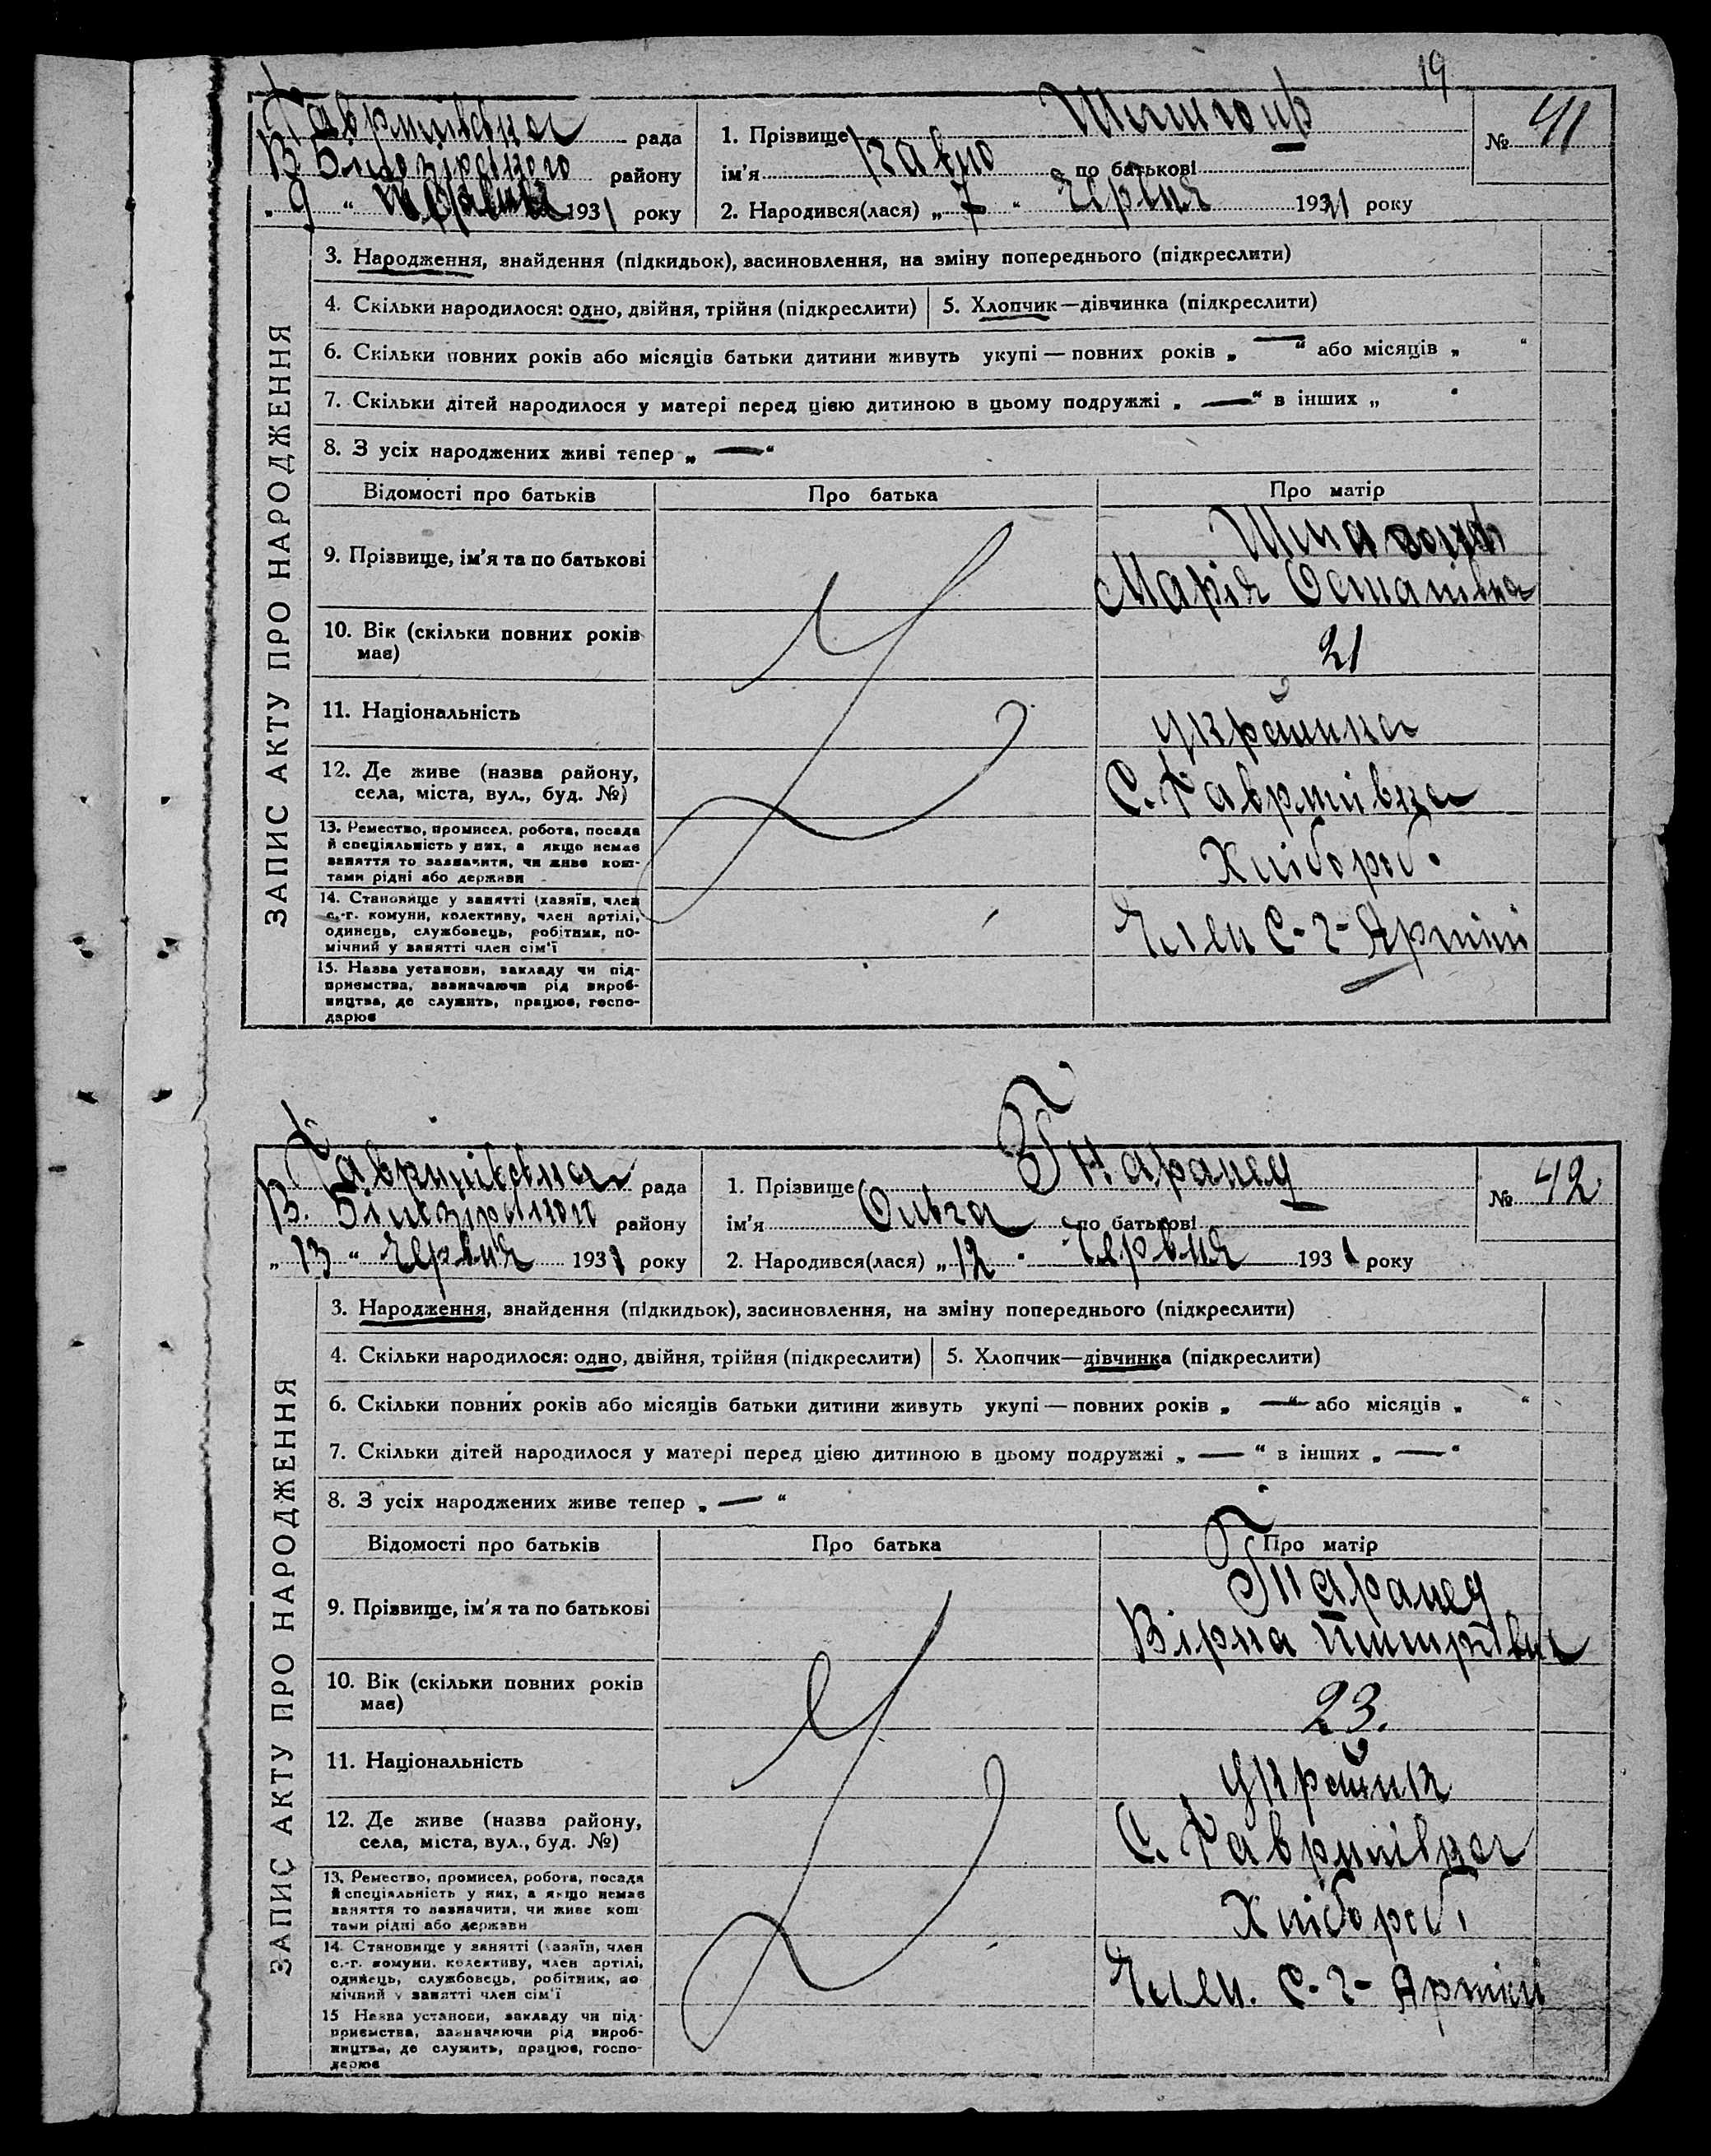 19
рада
району
„ 9 “ 1931 року
1. Прізвище
ім'я Павло по батькові
2. Народився(лася) „ 7 “ червня 1931 року
№ 41
ЗАПИС АКТУ ПРО НАРОДЖЕННЯ
3. Народження, знайдення (підкидьок), засиновлення, на зміну попереднього (підкреслити)
4. Скільки народилося: одно, двійня, трійня (підкреслити) 5. Хлопчик—дівчинка (підкреслити)
6. Скільки повних років або місяців батьки дитини живуть укупі — повних років „ — “ або місяців „ “
7. Скільки дітей народилося у матері перед цією дитиною в цьому подружжі „ — “ в інших „ “
8. З усіх народжених живі тепер „ — “
Відомості про батьків Про батька Про матір
9. Прізвище, ім'я та по батькові
Марія Остапівна
10. Вік (скільки повних років
має)
21
11. Національність
українка
12. Де живе (назва району,
села, міста, вул., буд. №)
С. Гавритівка
13. Ремество, промисел, робота, посада
й спеціяльність у них, а якщо немає
заняття то зазначити, чи живе кош-
тами рідні або держави
Хлібороб.
14. Становище у занятті (хазяїн, член
с.-г. комуни, колективу, член артілі,
одинець, службовець, робітник, по-
мічний у занятті член сім'ї
Член С-г-Артілі
15. Назва установи, закладу чи під-
приємства, зазначаючи рід вироб-
ництва, де служить, працює, госпо-
дарює
рада
району
„ 13 “ червня 1931 року
1. Прізвище Таранец
ім'я Ольга по батькові
2. Народився(лася) „ 12 “ червня 1931 року
№ 42
ЗАПИС АКТУ ПРО НАРОДЖЕННЯ
3. Народження, знайдення (підкидьок), засиновлення, на зміну попереднього (підкреслити)
4. Скільки народилося: одно, двійня, трійня (підкреслити) 5. Хлопчик—дівчинка (підкреслити)
6. Скільки повних років або місяців батьки дитини живуть укупі — повних років „ — “ або місяців „ “
7. Скільки дітей народилося у матері перед цією дитиною в цьому подружжі „ — “ в інших „ — “
8. З усіх народжених живе тепер „ — “
Відомості про батьків Про батька Про матір
9. Прізвище, ім'я та по батькові
Таранец
10. Вік (скільки повних років
має)
23.
11. Національність
українк
12. Де живе (назва району,
села, міста, вул., буд. №)
С. Гавритівка
13. Ремество, промисел, робота, посада
й спеціяльність у них, а якщо немає
заняття то зазначити, чи живе кош
тами рідні або держави
Хлібороб.
14. Становище у занятті (хазяїн, член
с.-г. комуни, колективу, член артілі,
одинець, службовець, робітник, по
мічний у занятті член сім'ї
Член. С-г- Артілі
15 Назва установи, закладу чи під-
приємства, зазначаючи рід вироб-
ництва, де служить, працює, госпо-
дарює